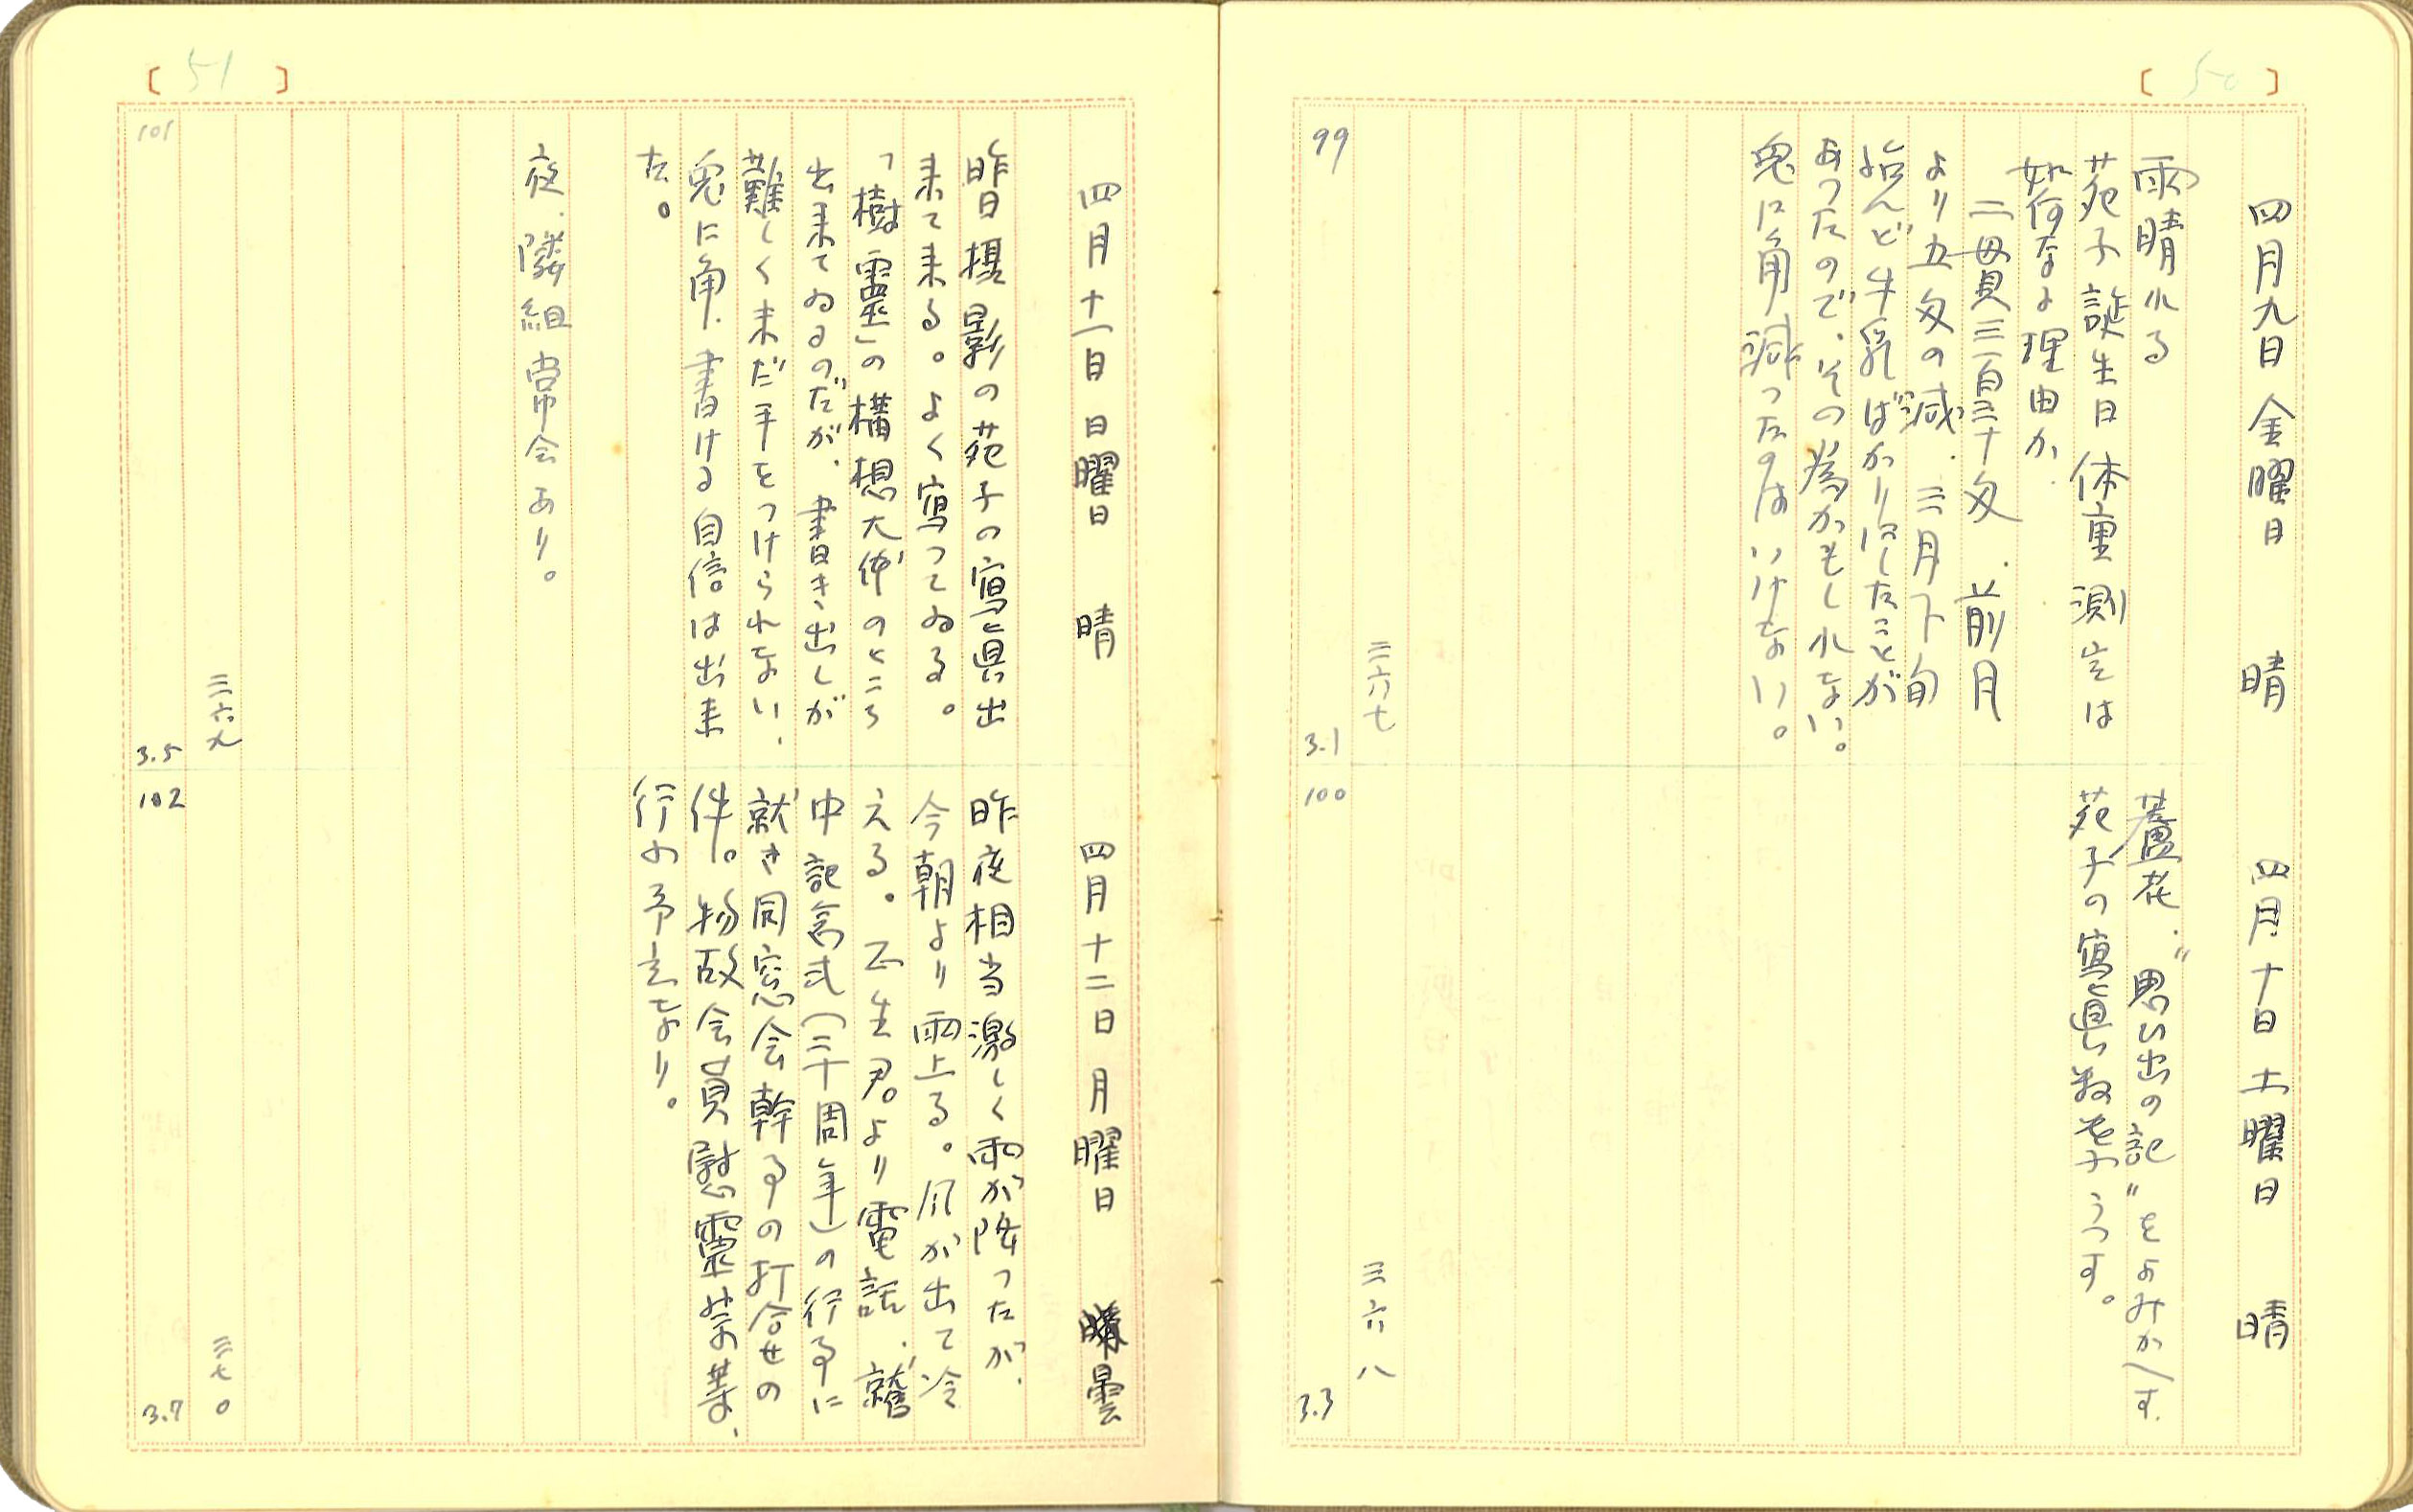 [50]
四月九日 金曜日 晴
雨晴れる
苑子誕生日体重測定は
如何なる理由か、
二貫三百三十匁、前月
より五匁の減、三月下旬
殆んど牛乳ばかりにしたことが
あつたので、その為かもしれない。
兎に角減つたのはいけない。
三六七
99
3.1
四月十日 土曜日 晴
蘆花、〝思い出の記〟をよみかへす、
苑子の寫眞数葉うつす。
三六八
100
3.3
[51]
四月十一日 日曜日 晴
昨日撮影の苑子の寫眞出
来て来る。よく寫つてゐる。
「樹靈」の構想大体のところ
出来てゐるのだが、書き出しが
難しく未だ手をつけられない、
兎に角、書ける自信は出来
た。
夜、隣組常会あり。
三六九
101
3.5
四月十二日 月曜日 曇
昨夜相当激しく雨が降つたが、
今朝より雨上る。風が出て冷
える。正生君より電話、
中記念式(三十周年)の行事に
就き同窓会幹事の打合せの
件。物故会員慰靈祭の業、
行の予定なり。
三七〇
102
3.7